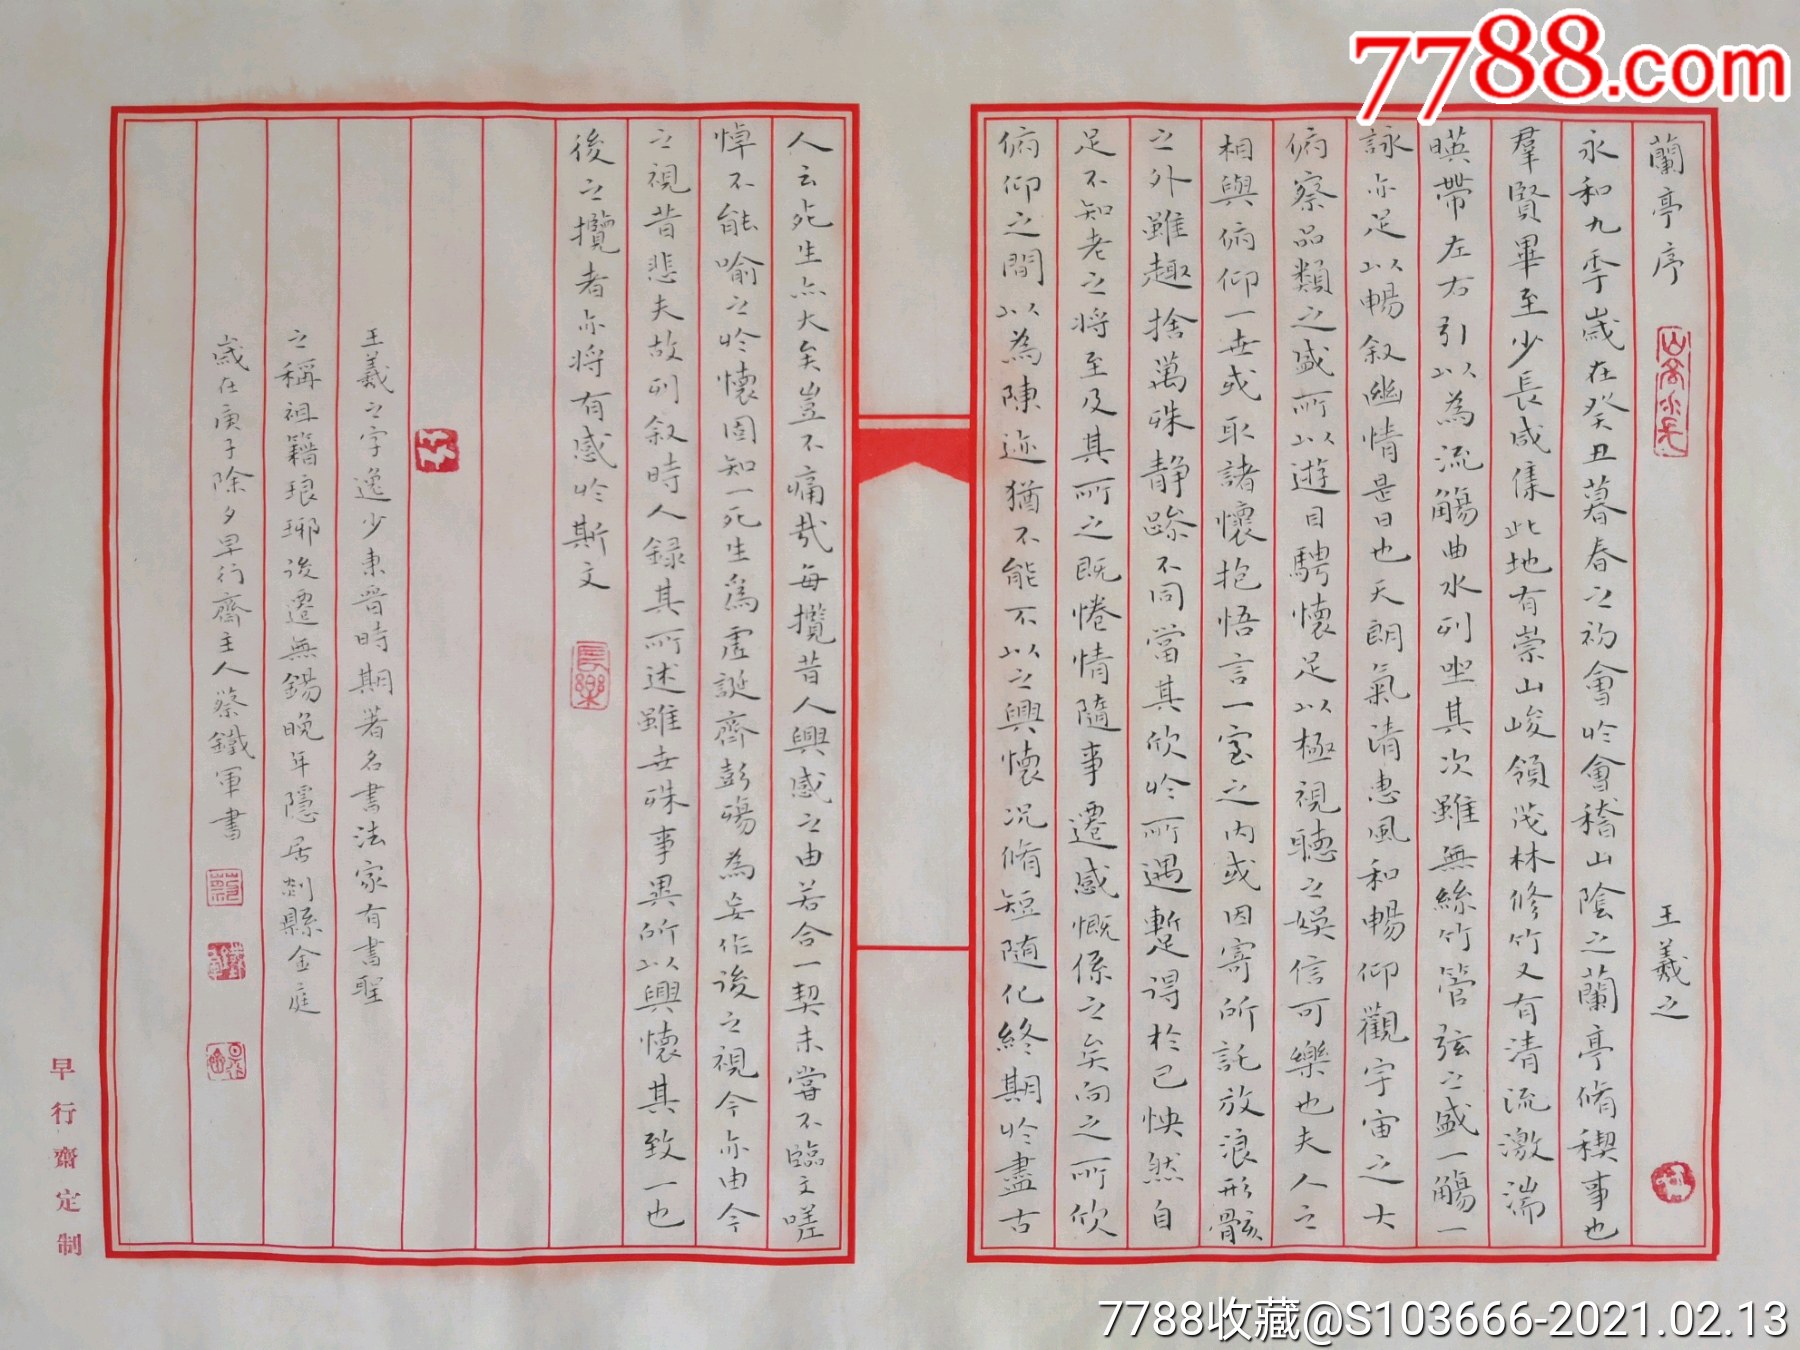 7788.com
蘭亭序
王羲之
永和九季歲在癸丑暮春之初會於會稽山陰之蘭亭脩稧事也
羣賢畢至少長咸集此地有崇山峻領茂林修竹又有清流激湍
暎帶左右引以為流觴曲水列坐其次雖無絲竹管弦之盛一觴一
詠亦足以暢叙幽情是日也天朗氣清惠風和暢仰觀宇宙之大
俯察品類之盛所以遊目騁懷足以極視聽之娛信可樂也夫人之
相與俯仰一世或取諸懷抱悟言一室之內或因寄所託放浪形骸
之外雖趣捨萬殊靜躁不同當其欣於所遇暫得於己怏然自
足不知老之將至及其所之既惓情隨事遷感慨係之矣向之所欣
俯仰之間以為陳迹猶不能不以之興懷況脩短隨化終期於盡古
人云死生亦大矣豈不痛哉每攬昔人興感之由若合一契未嘗不臨文嗟
悼不能喻之於懷固知一死生為虛誕齊彭殤為妄作後之視今亦由今
之視昔悲夫故列叙時人錄其所述雖世殊事異所以興懷其致一也
後之攬者亦將有感於斯文
長樂
王羲之字逸少東晉時期著名書法家有書聖
之稱祖籍琅琊後遷無錫晚年隱居剡縣金庭
歲在庚子除夕早行齋主人蔡鐵軍書
早行齋定制
7788收藏@S103666-2021.02.13